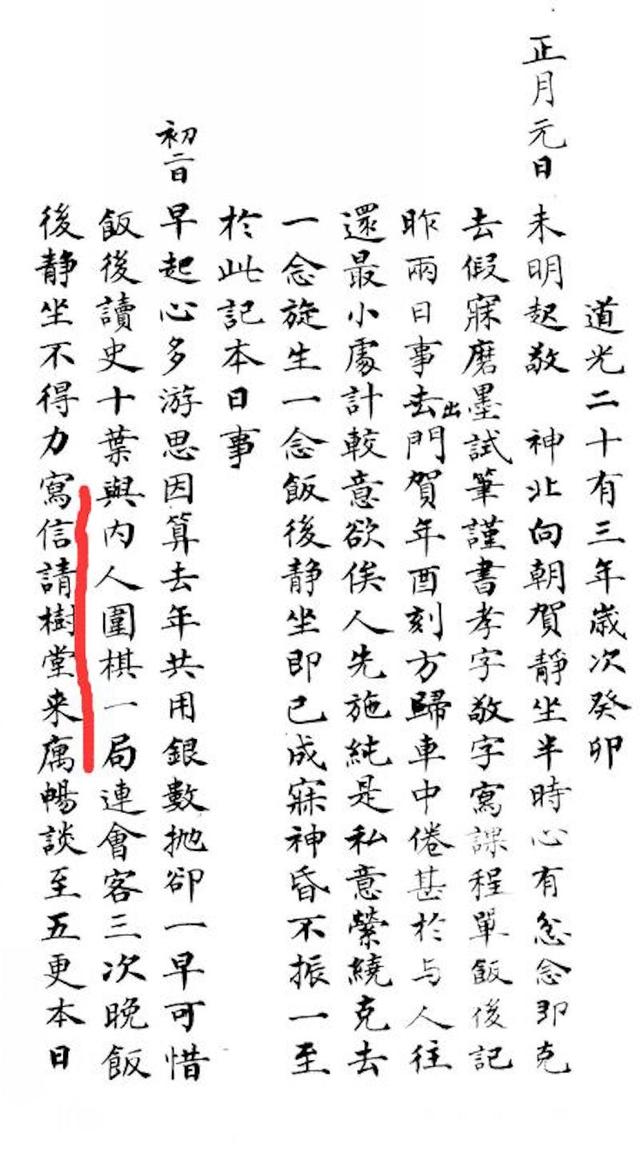 道光二十有三年歲次癸卯
正月元日 未明起敬 神北向朝賀靜坐半時心有忿念即克
去假寐磨墨試筆謹書孝字敬字寫課程單飯後記
昨兩日事去出門賀年酉刻方歸車中倦甚於与人往
還最小處計較意欲俟人先施純是私意縈繞克去
一念旋生一念飯後静坐即已成寐神昏不振一至
於此記本日事
初二日 早起心多游思因算去年共用銀數拋卻一早可惜
飯後讀史十葉與內人圍棋一局連會客三次晚飯
後静坐不得力寫信請樹堂来庽暢談至五更本日